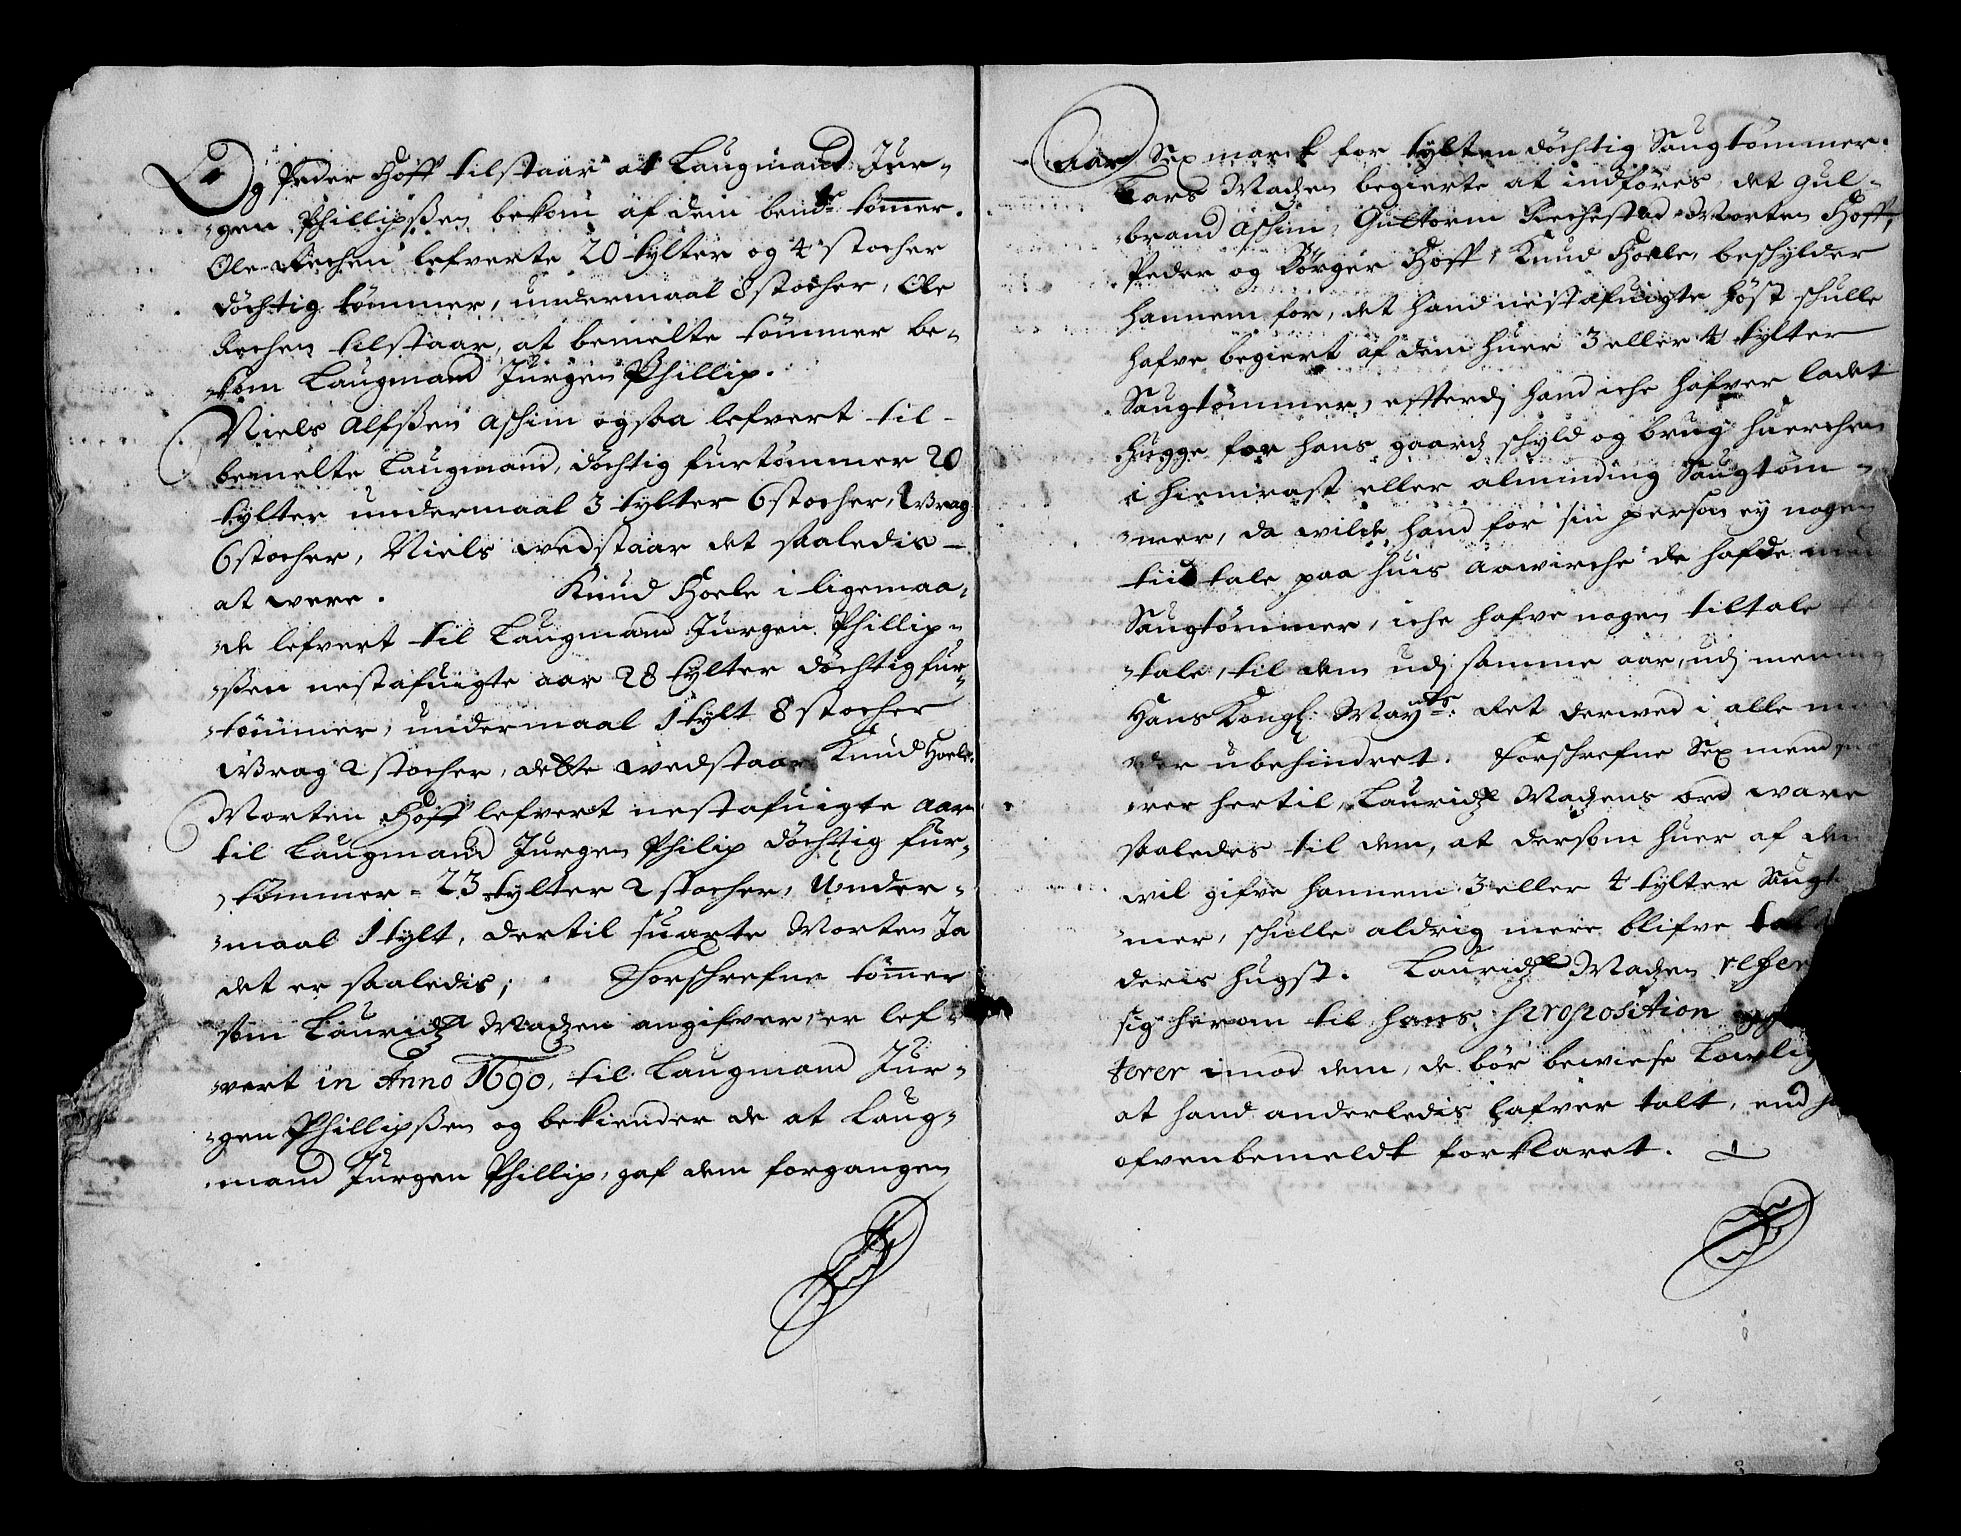 Og Peder Hoff tilstaar at Laugmand Jur-
gen Phillipssen bekom af dem bemte tømer.
Ole Rechen lefverte 20 tylter og 4 stocher
döchtig tömmer, undermaal 8 stocher, Ole
Rechen tilstaar, at bemelte tömmer be-
kom Laugmand Jürgen Phillip.
Niels Alfssen Aschim ogsaa lefvert til
bemelte Laugmand, döchtig furtömmer 20
tylter undermaal 3 tylter 6 stocher, Wrag
6 stocher, Niels wedstaar det saaledis
at were. Knud Hoele i ligemaa-
de lefvert til Laugmand Jurgen Phillip-
ssen nestafuigte aar 28 tylter döchtig fur-
tömmer, undermaal 1 tylt 8 stocher
Wrag 2 stocher, dette wedstaar Knud Hoele.
Morten Hoff lefvert nestafuigte aar
til Laugmand Jurgen Philip döchtig fur-
tömmer - 23 tylter 2 stocher, Under-
maal 1 tylt, dertil suarte Morten Ja
det er saaledis; Forschrefne tömer
som Lauridz Madzen angifver, er lef-
vert in Anno 1690, til Laugmand Jur-
gen Phillipssen og bekiender de at Laug-
mand Jurgen Phillip, gaf dem forgangen
Aar Sex marck for tylten döchtig Saugtömmer.
Lars Madzen begierte at indföres, det Gul-
brand Aschim, Guttorm Rechestad Morten Hoff,
Peder og Börger Hoff, Knud Hoele, beschylder
hannem for, det hand nestafuigte Höst schulle
hafve begiert af dem huer 3 eller 4 tylter
Saugtömmer, efferdj hand iche hafver ladet
hugge for hans gaardz schyld og brug huerchen
i hiemrast eller alminding Saugtöm-
mer, da wilde hand for sin person ey nogen
tiid tale paa huis aawirche de hafde med
Saugtömmer, iche hafve nogen tiltale
tale, til dem udj samme aar, udj mening
Hans Kongl: Mayts: Ret derwed i alle
der ubehindret. Forschrefne Sex mend
rer hertil, Lauridz Madzens ord ware
saaledes til dem, at dersom huer af dem
wil gifve hannem 3 eller 4 tylter Saugt
mer, schulle aldrig mere blifve talt
deris hugst. Lauridz Madzen refer
sig herom til hans proposition
terer imod dem, de bör bewiese Lowlig
at hand anderledis hafver talt, end
ofvenbemeldt forklaret.